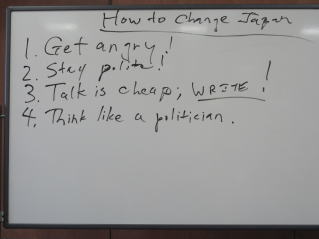 How to Change Japan
1. Get angry!
2. Stay polite!
3. Talk is cheap; WRITE!
4. Think like a politician.